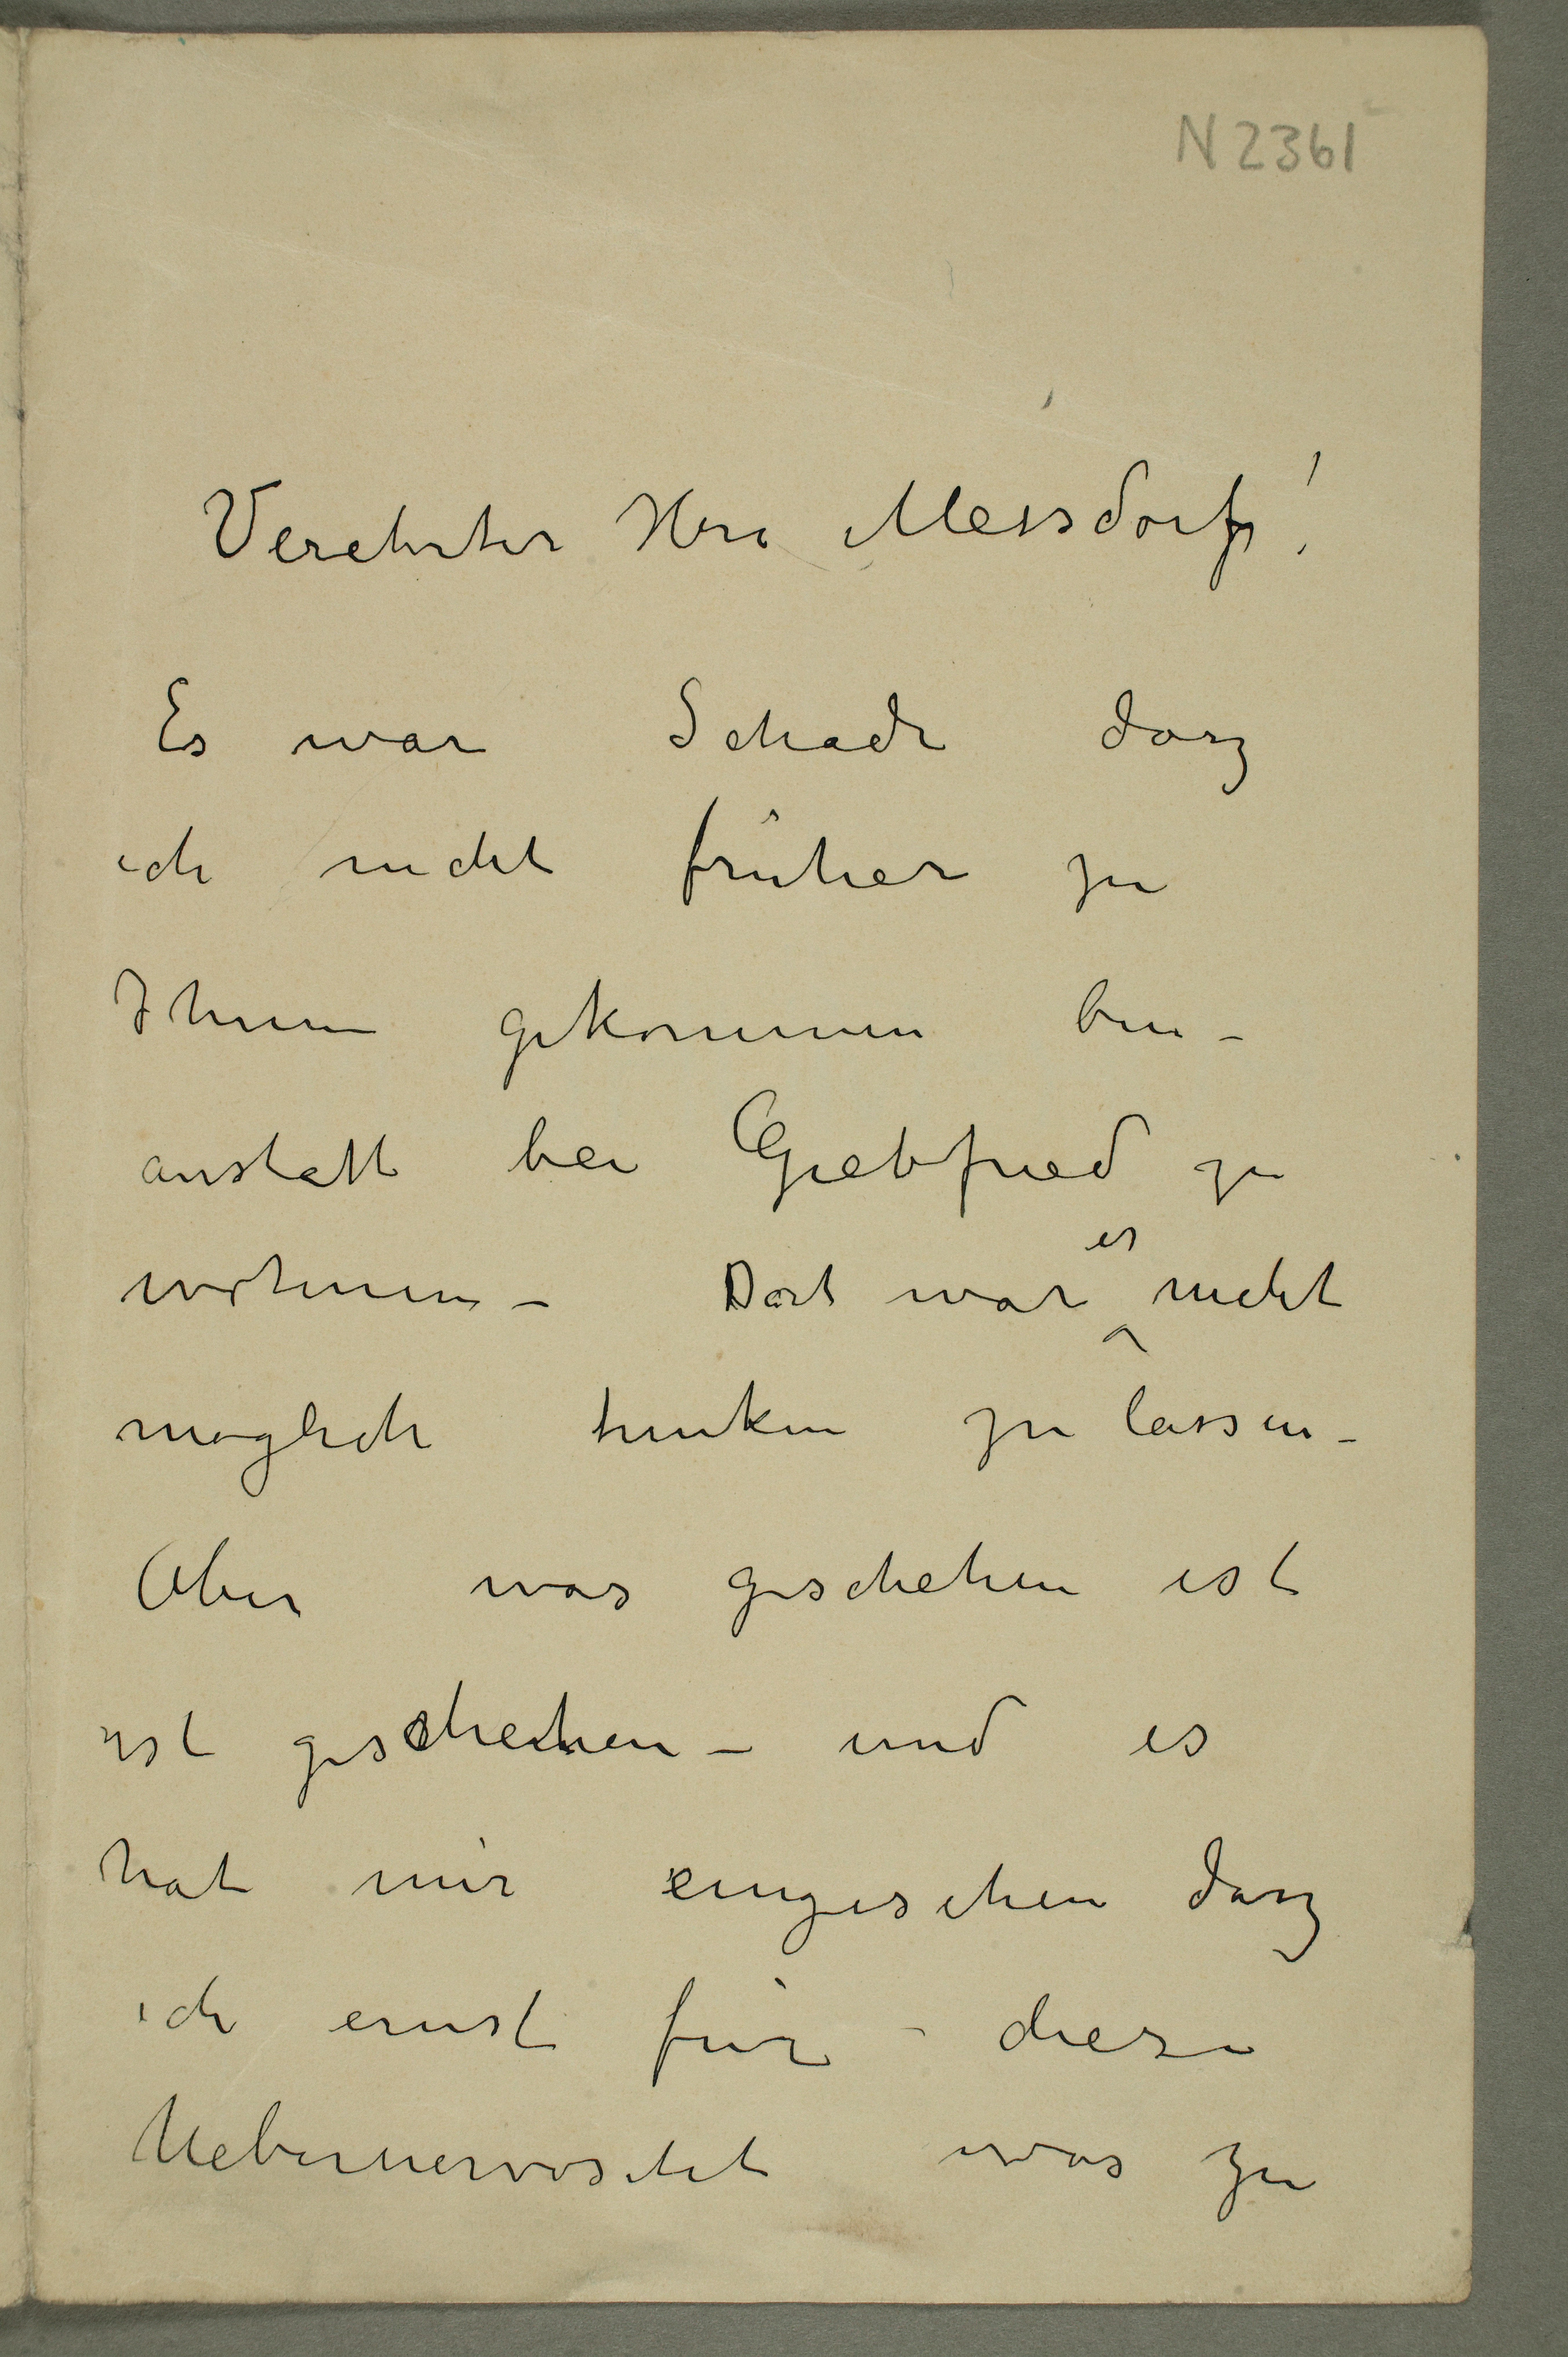 N 2361
Verehrter Herr Messdorff!
Es war Schade dasz
ich nicht früher zu
Ihnen gekommen bin –
anstatt bei Grebfried zu
wohnen – Dort war es nicht
möglich trinken zu lassen –
Aber was geschehen ist
ist geschehen – und es
hat mir eingesehen dasz
ich ernst für – diese
Uebernervositet was zu